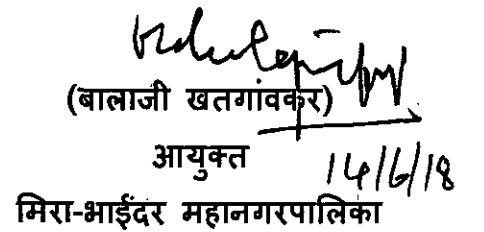 (बालाजी खतगांवकर)
आयुक्त
14/6/18
मिरा-भाईंदर महानगरपालिका